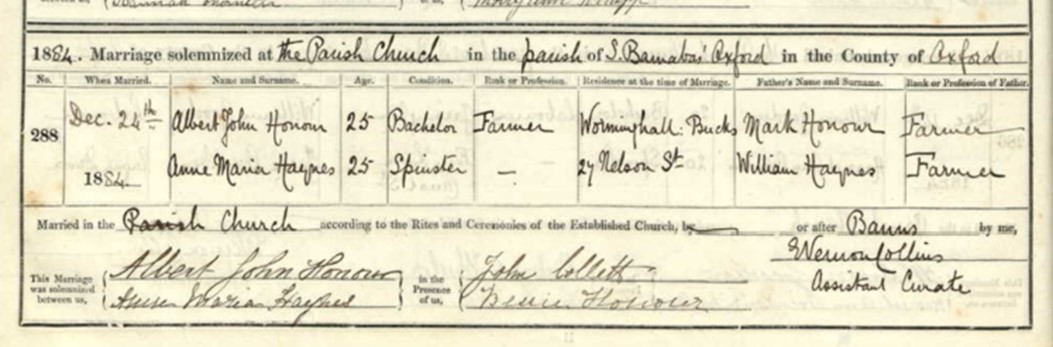 1884. Marriage solemnized at the Parish Church in the parish of S. Barnabas' Oxford in the County of Oxford
No. When Married. Name and Surname. Age. Condition. Rank or Profession. Residence at the time of Marriage. Father's Name and Surname. Rank or Profession of Father.
288 Dec. 24th 1884 Albert John Honour 25 Bachelor Farmer Worminghall: Bucks Mark Honour Farmer
Anne Maria Haynes 25 Spinster — 27 Nelson St William Haynes Farmer
Married in the Parish Church according to the Rites and Ceremonies of the Established Church, by — or after Banns by me,
This Marriage was solemnized between us, Albert John Honour in the Presence of us, John Collett E Vernon Collins
Anne Maria Haynes Honour Assistant Curate